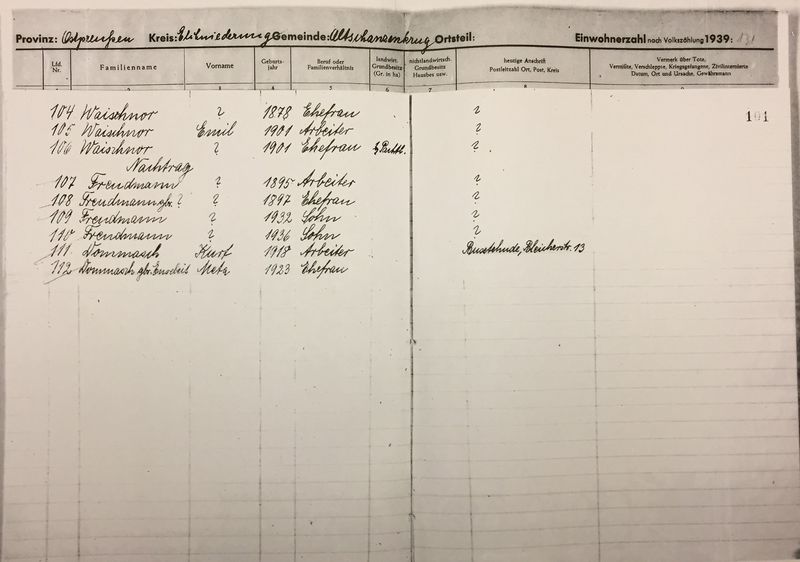 Provinz: Ostpreußen Kreis: Elchniederung Gemeinde: Altschanzenkrug Ortsteil: Einwohnerzahl nach Volkszählung 1939: 131
Lfd. Nr. Familienname Vorname Geburts-jahr Beruf oder Familienverhältnis landwirt. Grundbesitz (Gr. in ha) nichtlandwirtsch. Grundbesitz Hausbes usw. heutige Anschrift Postleitzahl Ort, Post, Kreis Vermerk über Tote, Vermißte, Verschleppte, Kriegsgefangene, Zivilinternierte Datum, Ort und Ursache, Gewährsmann
2 3 4 5 6 7 8 9
104 Waischnor ? 1878 Ehefrau ? 101
105 Waischnor Emil 1901 Arbeiter ?
106 Waischnor ? 1901 Ehefrau ?
Nachtrag
107 Freudmann ? 1895 Arbeiter ?
108 Freudmann gb. ? ? 1897 Ehefrau ?
109 Freudmann ? 1932 Sohn ?
110 Freudmann ? 1936 Sohn ?
111 Dommasch Kurt 1918 Arbeiter Buxtehude, Bleicherstr. 13
112 Dommasch gb. Enseleit Meta 1923 Ehefrau